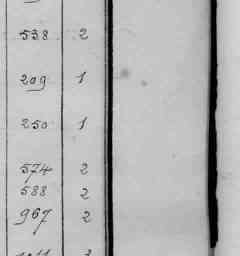 538 2
209 1
250 1
574 2
588 2
967 2